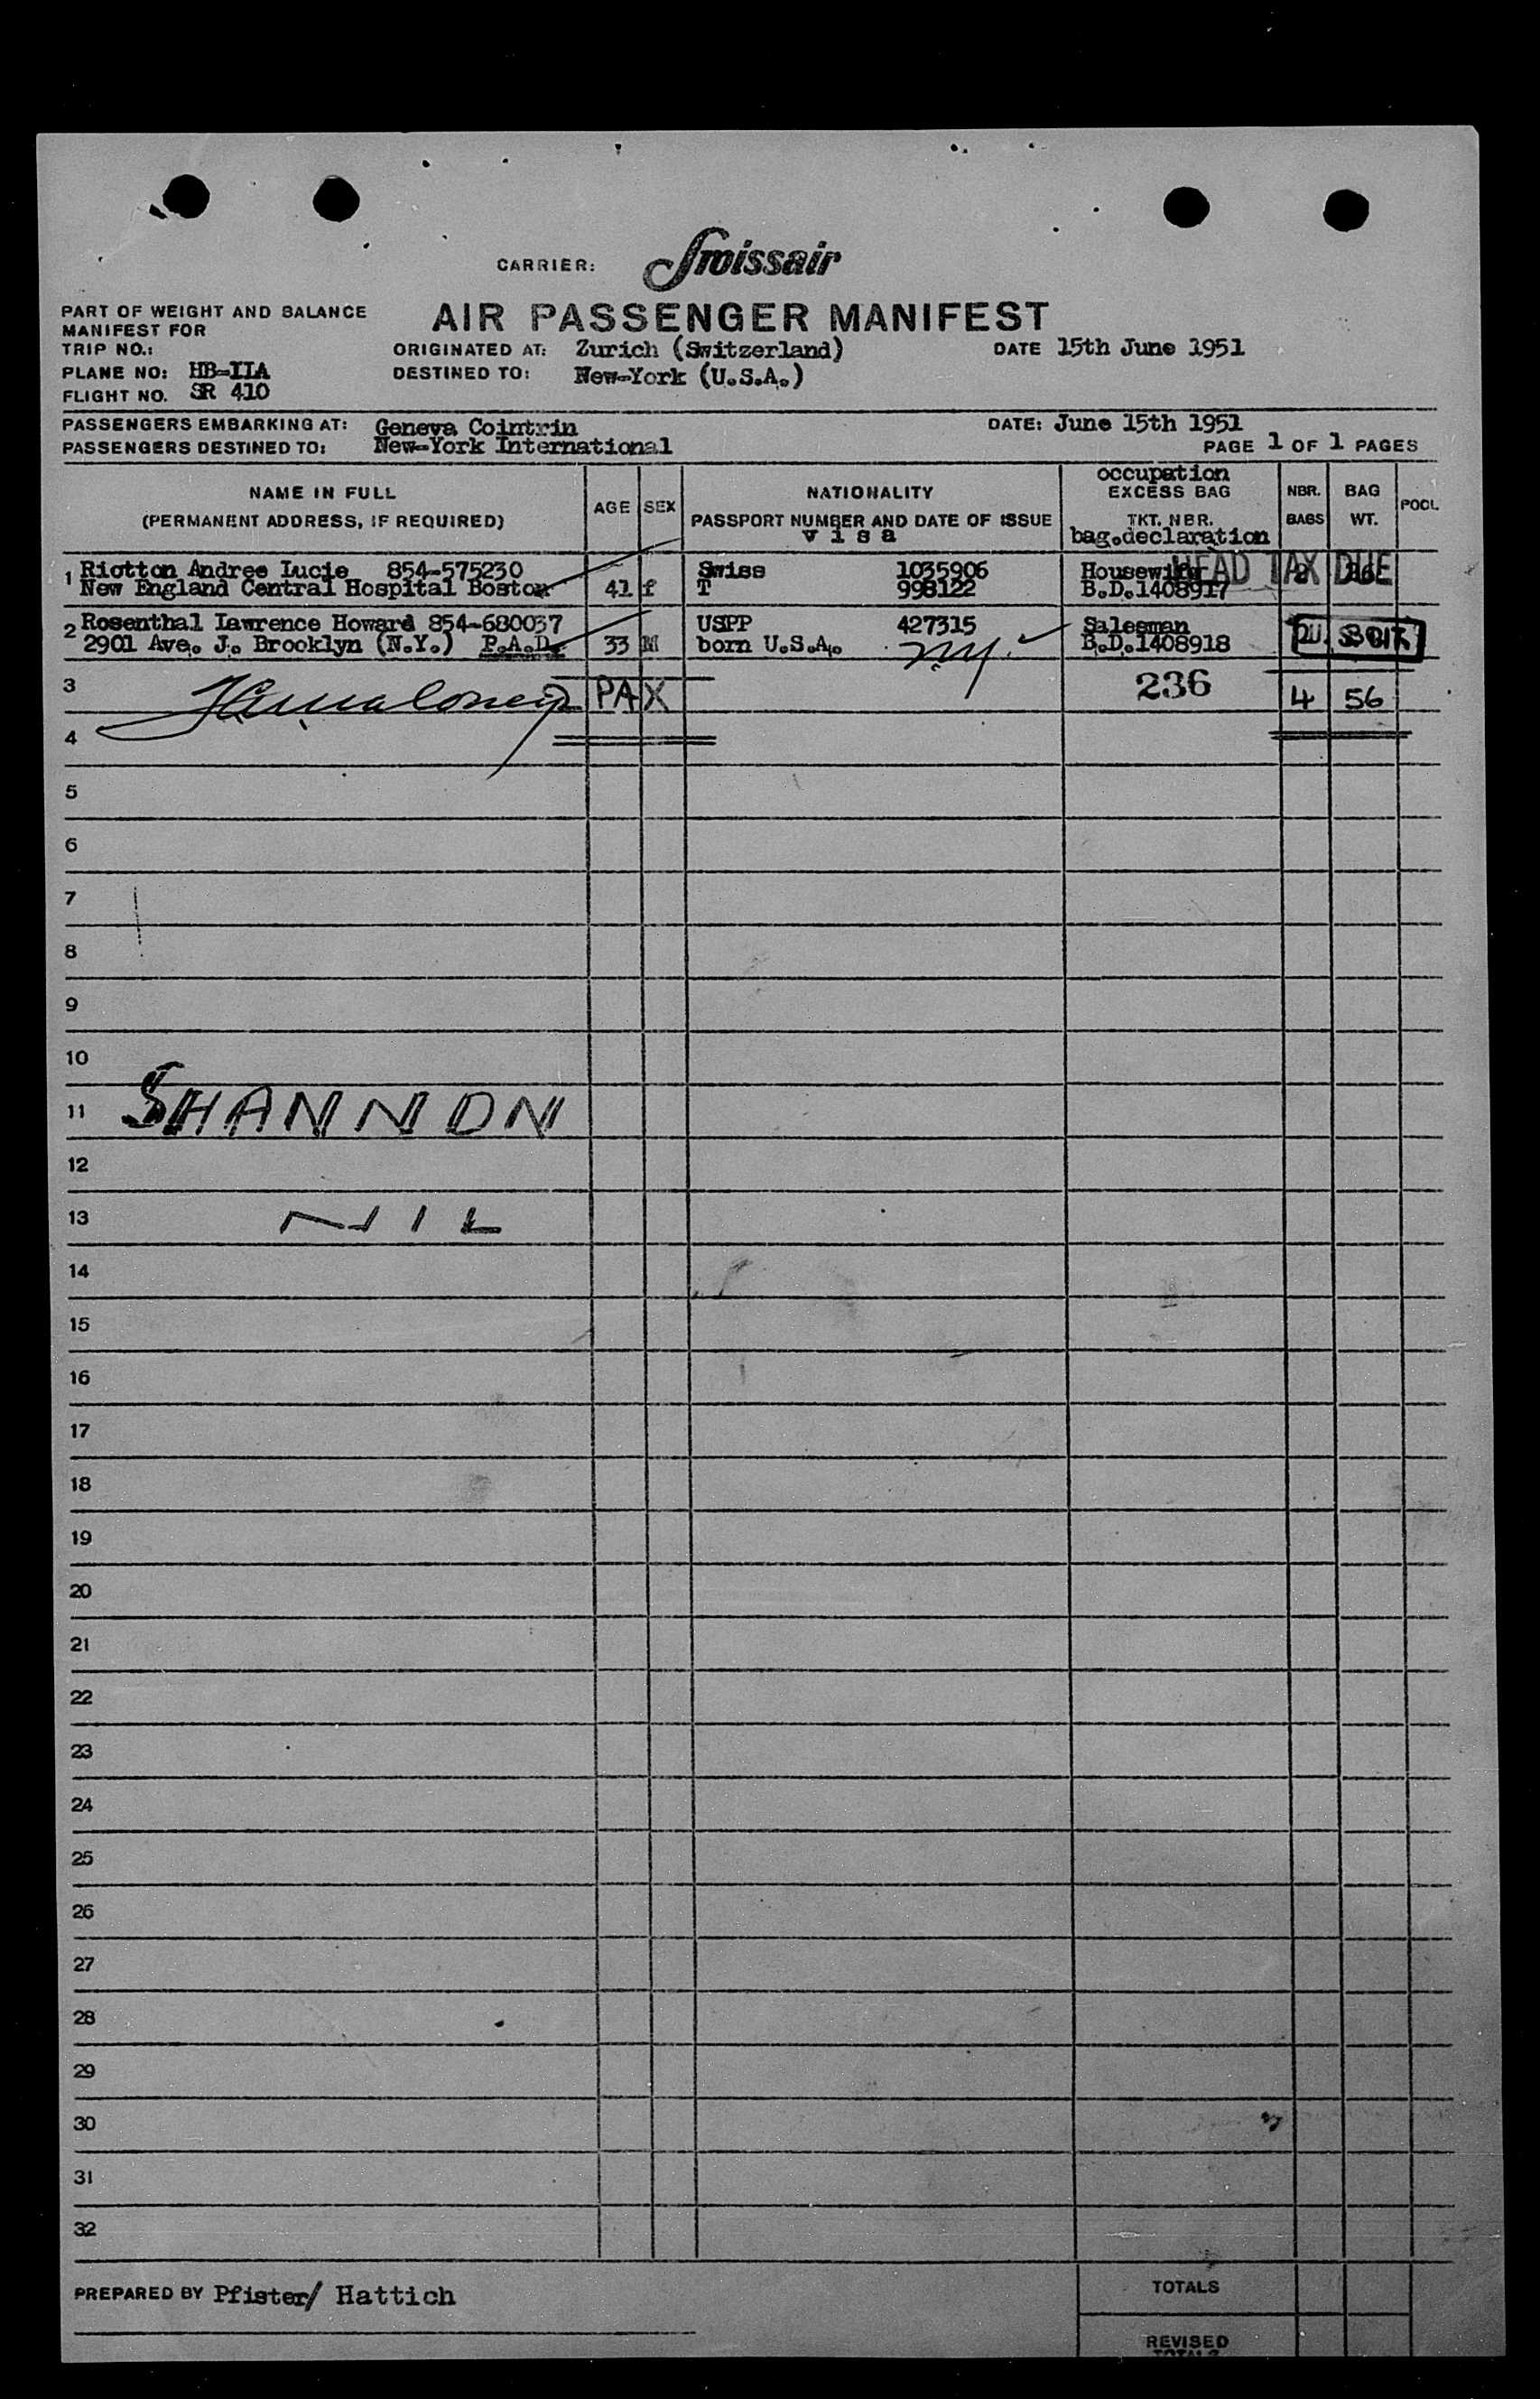 CARRIER: Swissair
PART OF WEIGHT AND BALANCE
MANIFEST FOR
AIR PASSENGER MANIFEST
TRIP NO.:
ORIGINATED AT: Zurich (Switzerland) DATE 15th June 1951
PLANE NO: HB-IIA
DESTINED TO: New-York (U.S.A.)
FLIGHT NO. SR 410
PASSENGERS EMBARKING AT: Geneva Cointrin DATE: June 15th 1951
PASSENGERS DESTINED TO: New-York International PAGE 1 OF 1 PAGES
occupation
NAME IN FULL AGE SEX NATIONALITY EXCESS BAG NBR. BAG POOL
(PERMANENT ADDRESS, IF REQUIRED) PASSPORT NUMBER AND DATE OF ISSUE TKT. NBR. BAGS WT.
visa bag.declaration
HEAD TAX DUE
1 Riotton Andree Lucie 854-575230 Swiss 1035906 Housewife
New England Central Hospital Boston 41 f T 998122 B.D.1408917
2 Rosenthal Lawrence Howard 854-680037 USPP 427315 Salesman
2901 Ave. J. Brooklyn (N.Y.) P.A.D. 33 M born U.S.A. B.D.1408918 U.S. CIT.
3 2 PAX 236 4 56
4
5
6
7
8
9
10
11 SHANNON
12
13 NIL
14
15
16
17
18
19
20
21
22
23
24
25
26
27
28
29
30
31
32
PREPARED BY Pfister/ Hattich TOTALS
REVISED
TOTALS